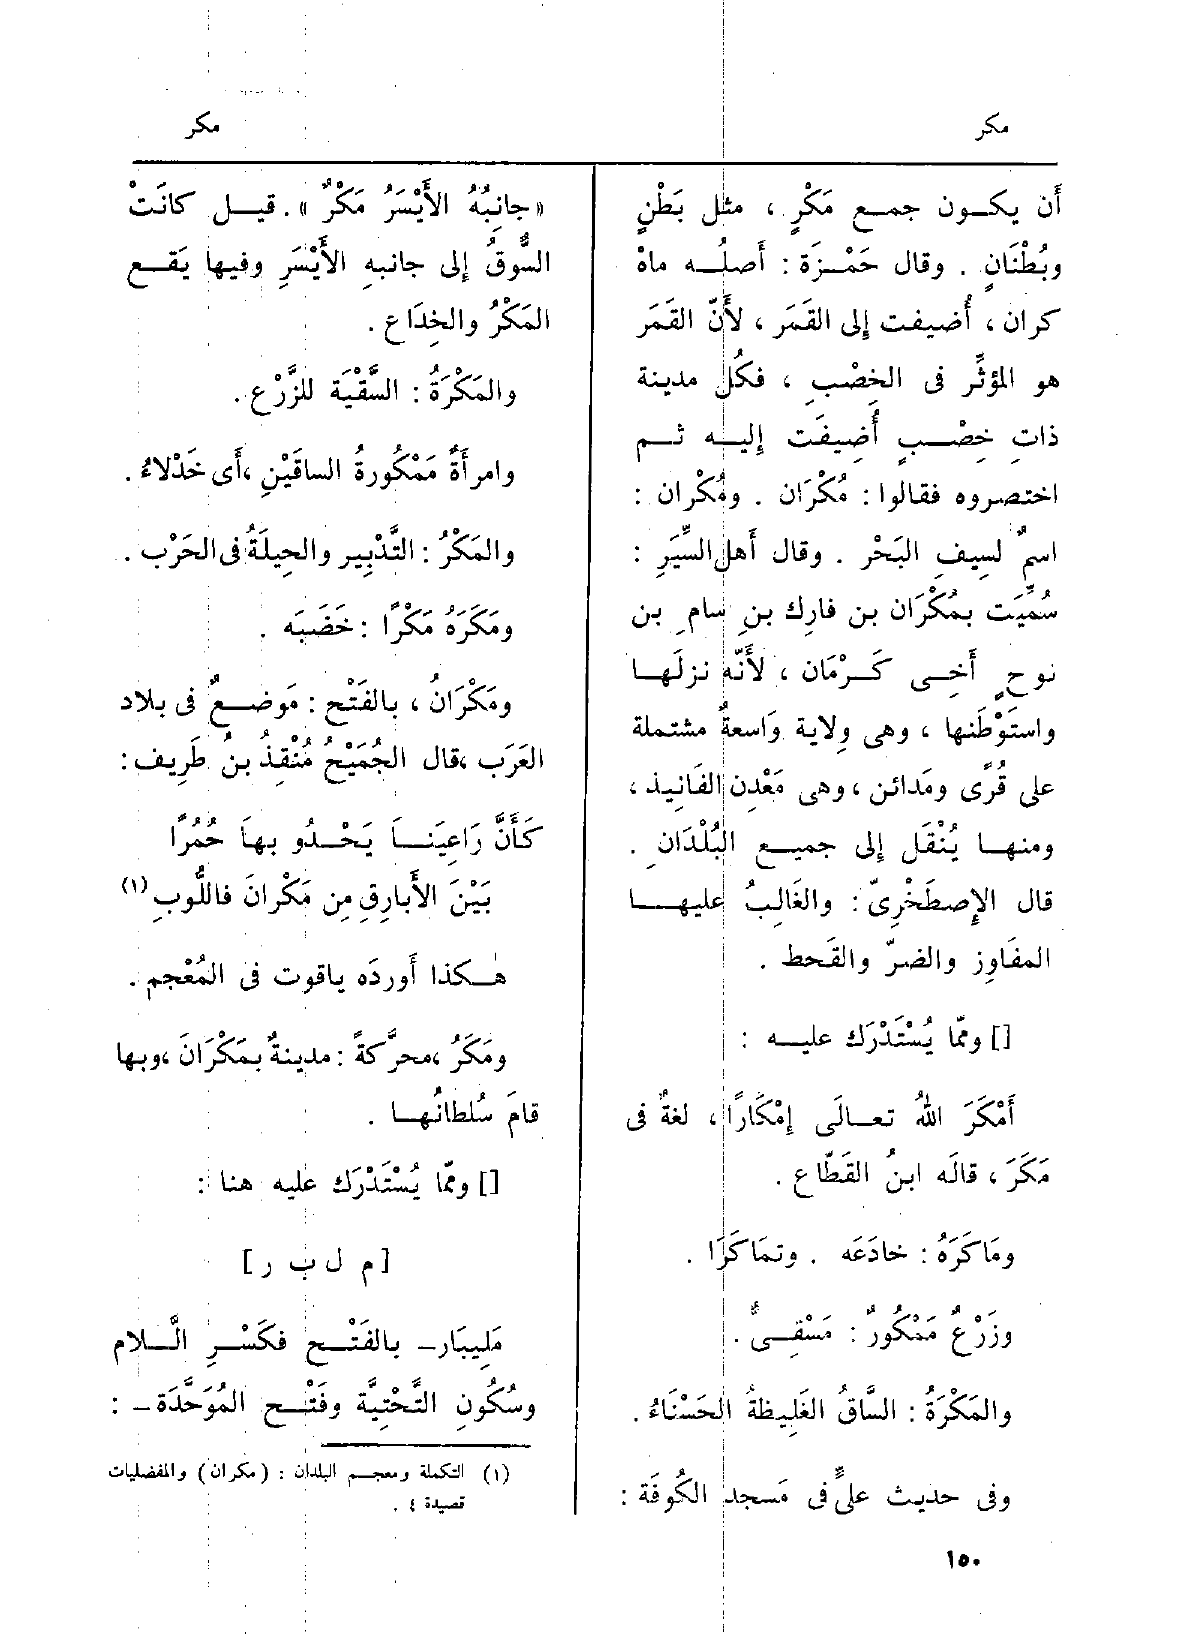 مكر
مكر
أَن يكـون جمـع مَكْرٍ ، مثل بَطْنٍ
وبُطْنَانٍ . وقال حَمْـزَة : أَصلُـه ماهْ
كران ، أُضيفت إِلى القَمَر ، لأَنّ القَمَر
هو المؤثِّر فى الخِصْبِ ، فكُل مدينة
ذاتِ خِصْـبٍ أُضِيفَت إِليـه ثـم
اختصروه فقالوا : مُكْرَان . ومُكْران :
اسمٌ لسِيفِ البَحْر . وقال أَهل السِّيَرِ :
سُمِّيَت بمُكْرَان بن فارك بنِ سام ِ بن
نوح ٍ أَخِـى كَـرْمَان ، لأَنّه نزلَهـا
واستَوْطَنها ، وهى وِلاية وَاسعةٌ مشتملة
على قُرًى ومَدائن ، وهى مَعْدِن الفَانِيذ ،
ومنهـا يُنْقَل إِلى جميـع البُلْدَانِ .
قال الإِصطَخْرِىّ : والغَالِبُ عليهـا
المفَاوِز والضرّ والقَحط .
[] وممّا يُسْتَدْرَك عليـه :
أَمْكَرَ اللهُ تعـالَى إِمْكَارًا ، لغةٌ فى
مَكَرَ ، قالَه ابنُ القَطّاع .
ومَاكَرَهُ : خادَعَه . وتمَاكَرَا .
وزَرْعٌ مَمْكُورٌ : مَسْقِـىٌّ .
والمَكْرَةُ : السَّاقُ الغَلِيظةُ الحَسْناءُ .
وفى حديث علىٍّ فى مَسجد الكُوفَة :
« جانِبُهُ الأَيْسَرُ مَكْرٌ » . قيـل كانَتْ
السُّوقُ إِلى جانبهِ الأَيْسَرِ وفيها يَقـع
المَكْرُ والخِدَاع .
والمَكْرَةُ : السَّقْيَة للزَّرْع .
وامرأَةٌ مَمْكُورةُ الساقَيْنِ ، أَى خَدْلاءُ .
والمَكْرُ : التَّدْبِير والحِيلَةُ فى الحَرْب .
ومَكَرَهُ مَكْرًا : خَضَبَه .
ومَكْرَانُ ، بالفَتْح : مَوضـعٌ فى بلاد
العَرَب ، قال الجُمَيْحُ مُنْقِذُ بنُ طَرِيف :
كَأَنَّ رَاعِيَنـا يَحْـدُو بهَا حُمُرًا
بَيْنَ الأَبارِقِ مِن مَكْرانَ فاللُّوبِ (١)
هـكذا أَوردَه ياقوت فى المُعْجم .
ومَكَرُ ، محرَّكةً : مدينةٌ بمَكْرَانَ ، وبها
قامَ سُلطانُهـا .
[] وممّا يُسْتَدْرَك عليه هنا :
[ م ل ب ر ]
مَلِيبَار ــ بالفَتْـح فكَسْـرِ الَّـلام
وسُكُونِ التَّحْتِيَّة وفَتْـح المُوَحَّدَة ــ :
(١) التكملة ومعجـم البلدان : (مكران) والمفضليات
قصيدة ٤ .
١٥٠